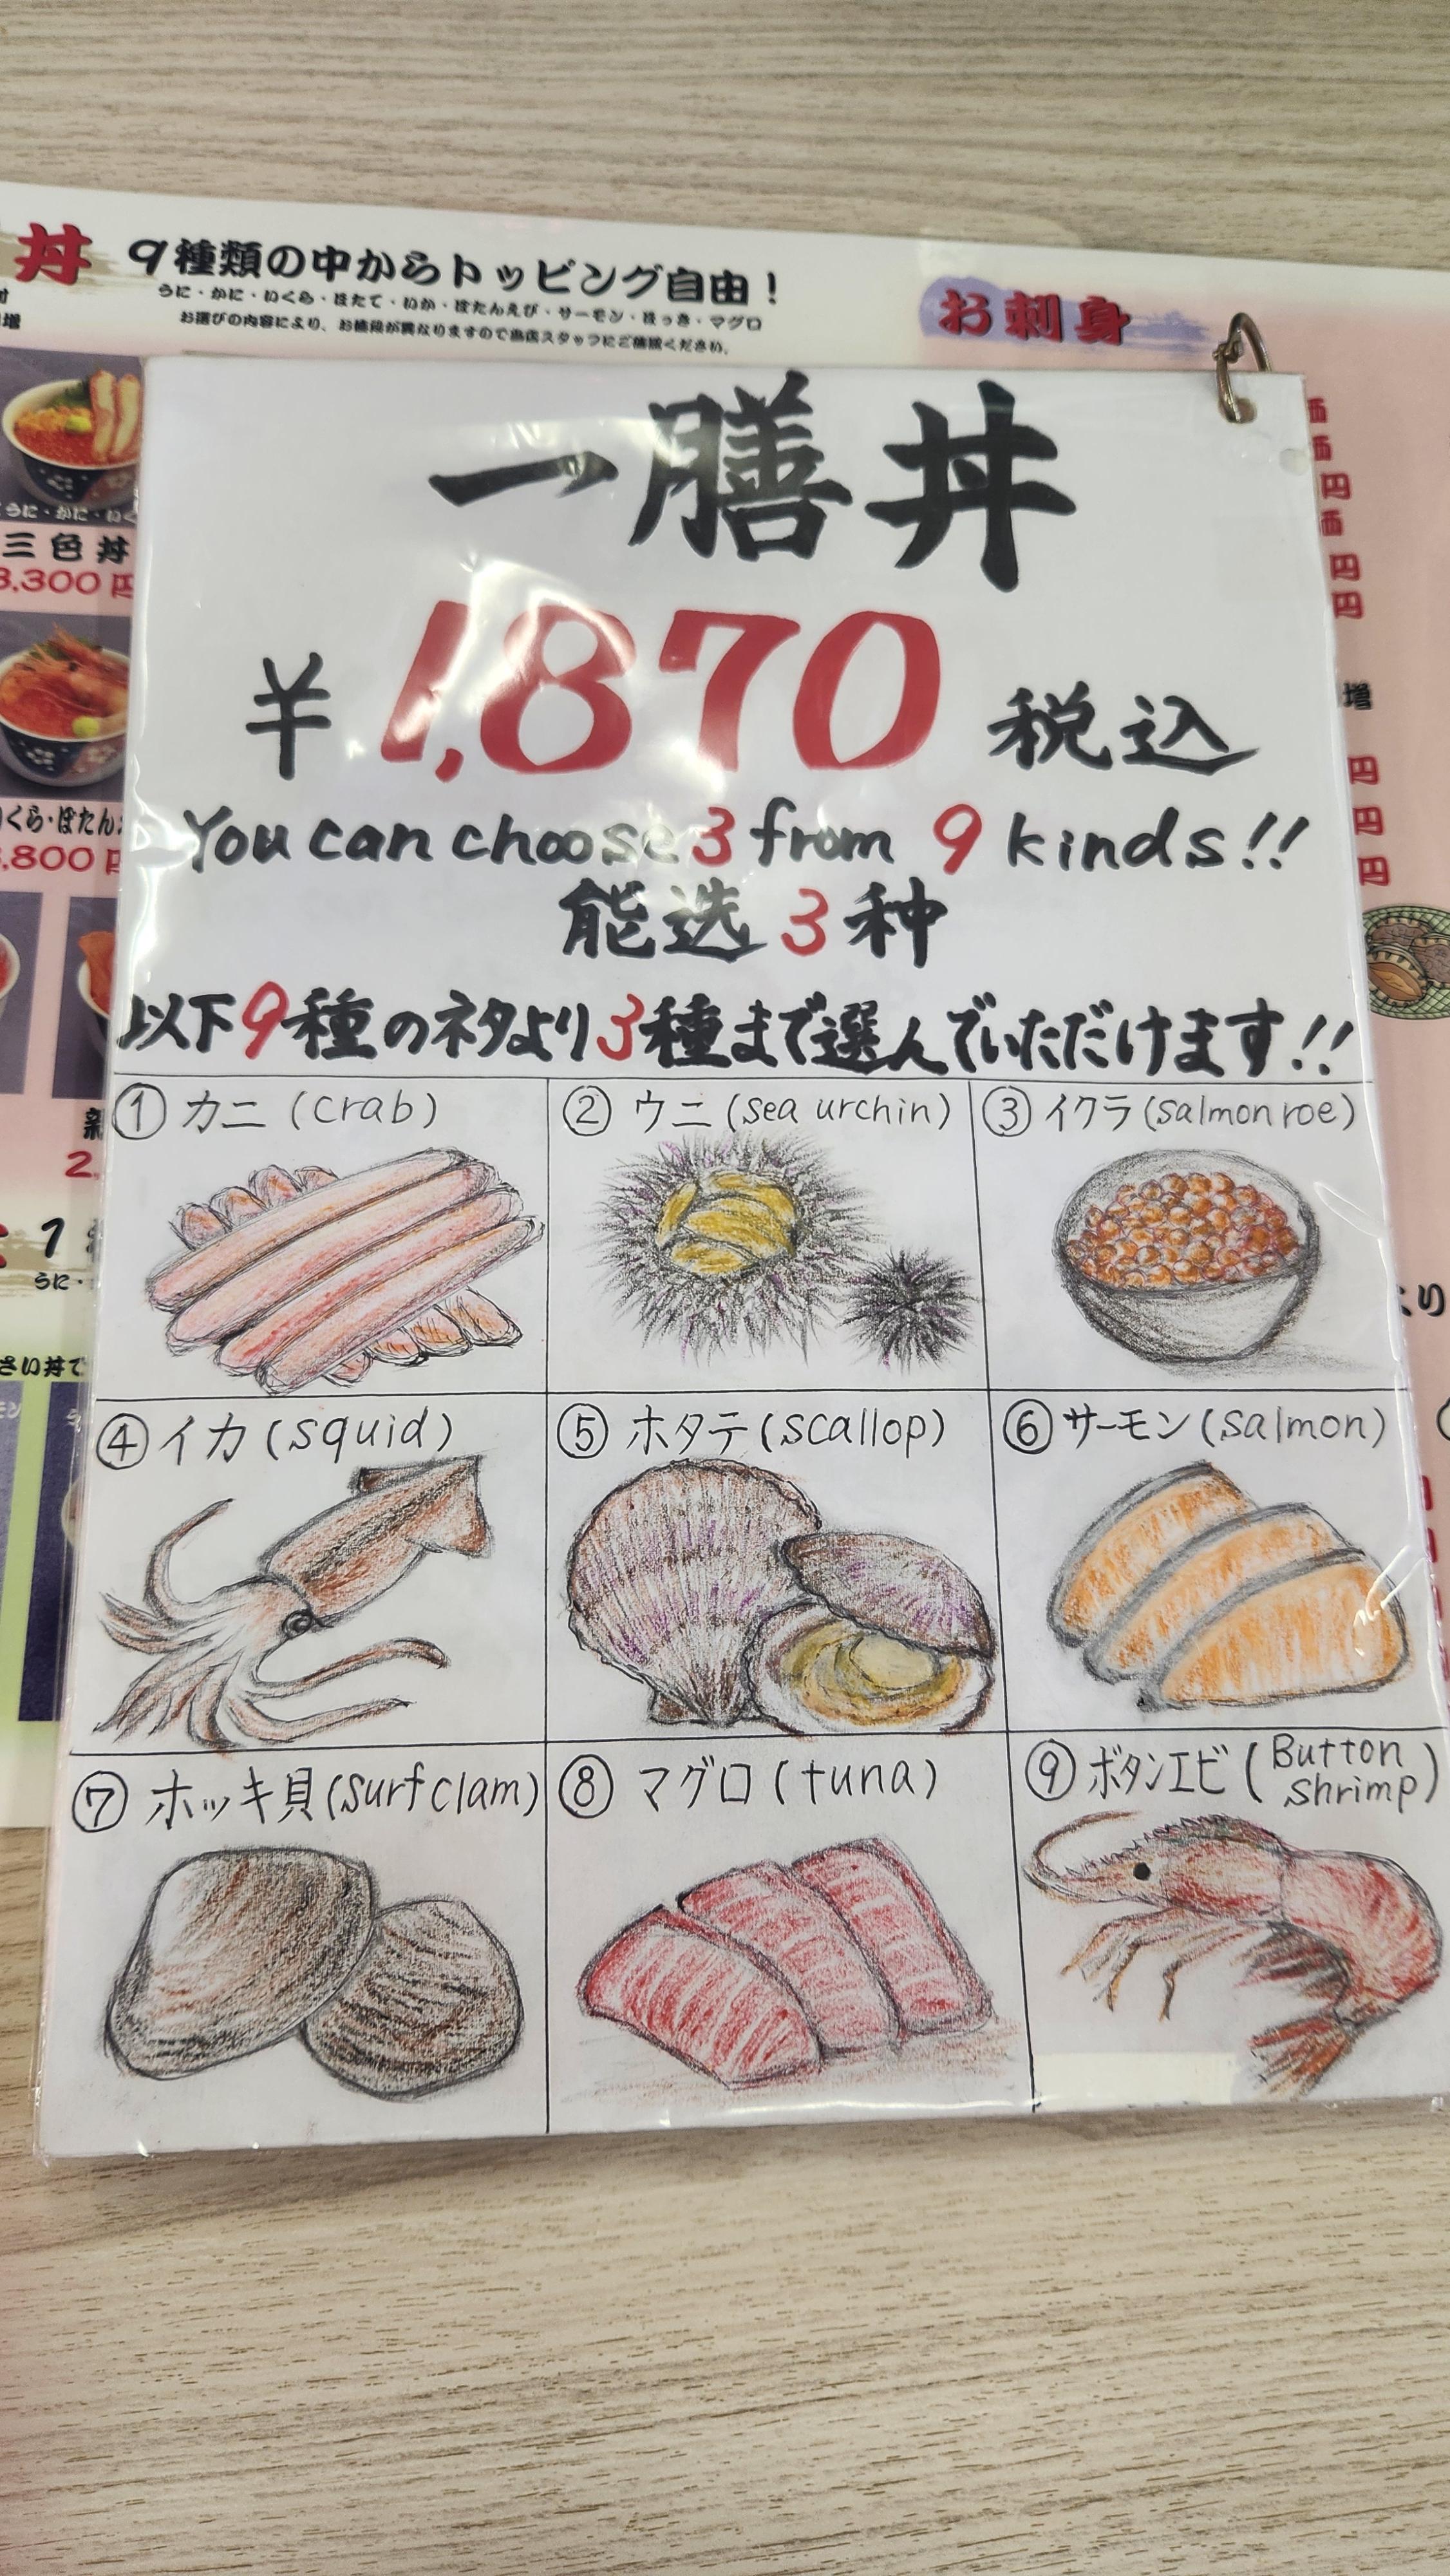 丼 9種類の中からトッピング自由！
うに・かに・いくら・ほたて・いか・ぼたんえび・サーモン・ほっき・マグロ
お選びの内容により、お値段が異なりますので当店スタッフにご確認ください。
お刺身
うに・かに・いく
三色丼
3,300円
くら・ぼたん
,800円
一膳丼
¥1,870 税込
You can choose 3 from 9 kinds!!
能选3种
以下9種のネタより3種まで選んでいただけます!!
① カニ (crab)
② ウニ (sea urchin)
③ イクラ (salmon roe)
④ イカ (squid)
⑤ ホタテ (scallop)
⑥ サーモン (salmon)
⑦ ホッキ貝 (surf clam)
⑧ マグロ (tuna)
⑨ ボタンエビ (Button shrimp)